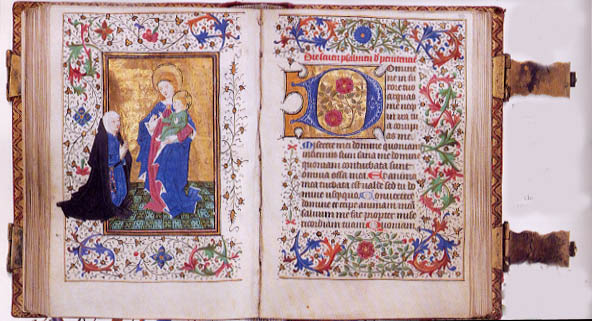 Die seuen psalmen d penitencie
Domine
ne in fu
rore tuo
arguas
me neq
in ira
tua
me
Miserere mei domine quoniam
infirmus sum sana me domine
quoniam conturbata sunt
omnia ossa mea Et anima
mea turbata est valde sed tu do
mine usquequo Convertere
domine et eripe animam mea
saluam me fac propter mise
ricordiam tuam Quoniam